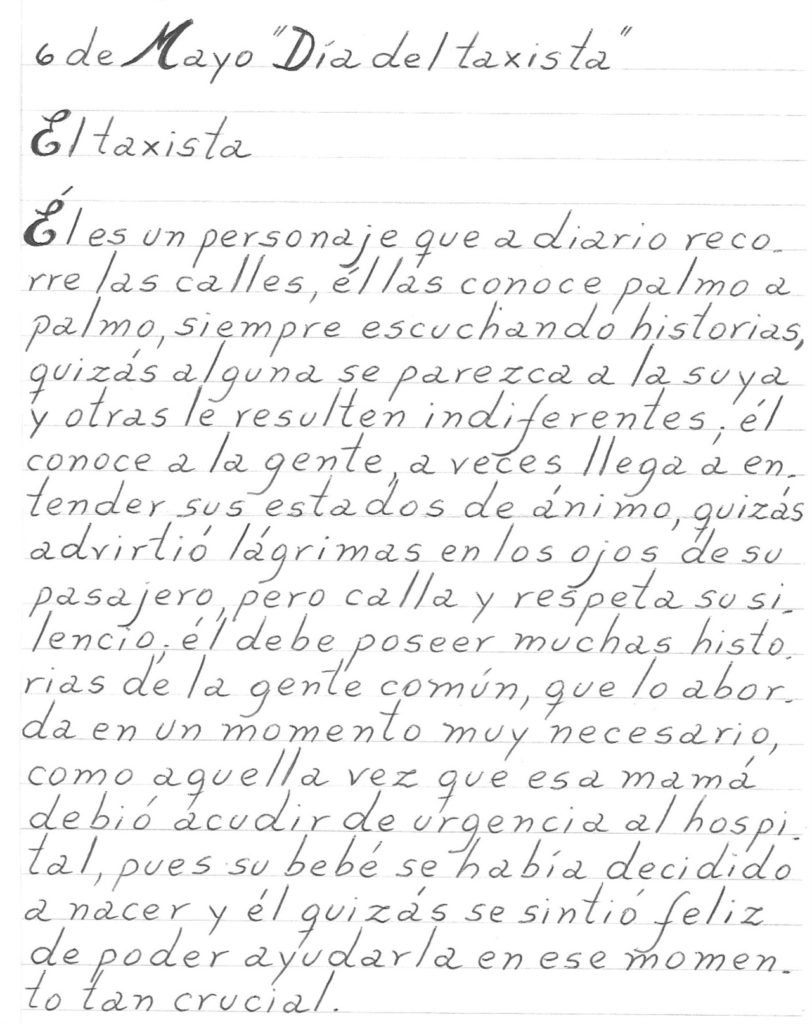 6 de Mayo "Día del taxista"
El taxista
Él es un personaje que a diario reco-
rre las calles, él las conoce palmo a
palmo, siempre escuchando historias,
quizás alguna se parezca a la suya
y otras le resulten indiferentes; él
conoce a la gente, a veces llega a en-
tender sus estados de ánimo, quizás
advirtió lágrimas en los ojos de su
pasajero, pero calla y respeta su si-
lencio; él debe poseer muchas histo-
rias de la gente común, que lo abor-
da en un momento muy necesario,
como aquella vez que esa mamá
debió acudir de urgencia al hospi-
tal, pues su bebé se había decidido
a nacer y él quizás se sintió feliz
de poder ayudarla en ese momen-
to tan crucial.